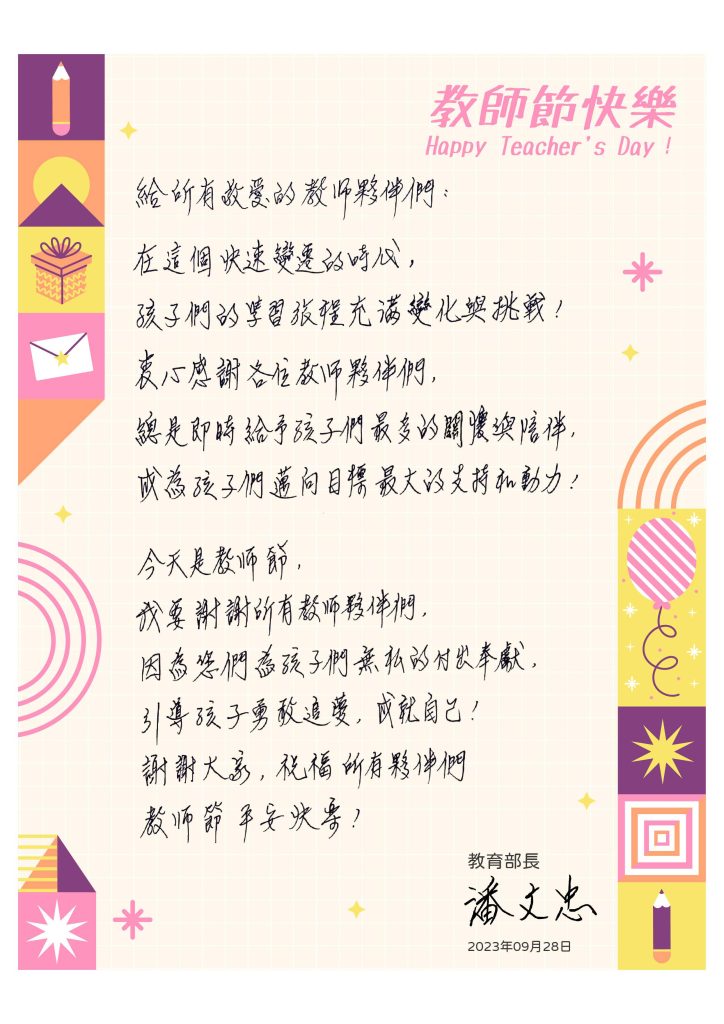 教師節快樂
Happy Teacher's Day !
給所有敬愛的教师夥伴們：
在這個快速變遷的時代，
孩子們的學習旅程充滿變化與挑戰！
衷心感謝各位教师夥伴們，
總是即時給予孩子們最多的關懷與陪伴，
成為孩子們邁向目標最大的支持和動力！
今天是教师節，
我要謝謝所有教师夥伴們，
因為您們為孩子們無私的付出奉獻，
引導孩子勇敢追夢，成就自己！
謝謝大家，祝福所有夥伴們
教师節平安快樂！
教育部長
潘文忠
2023年09月28日